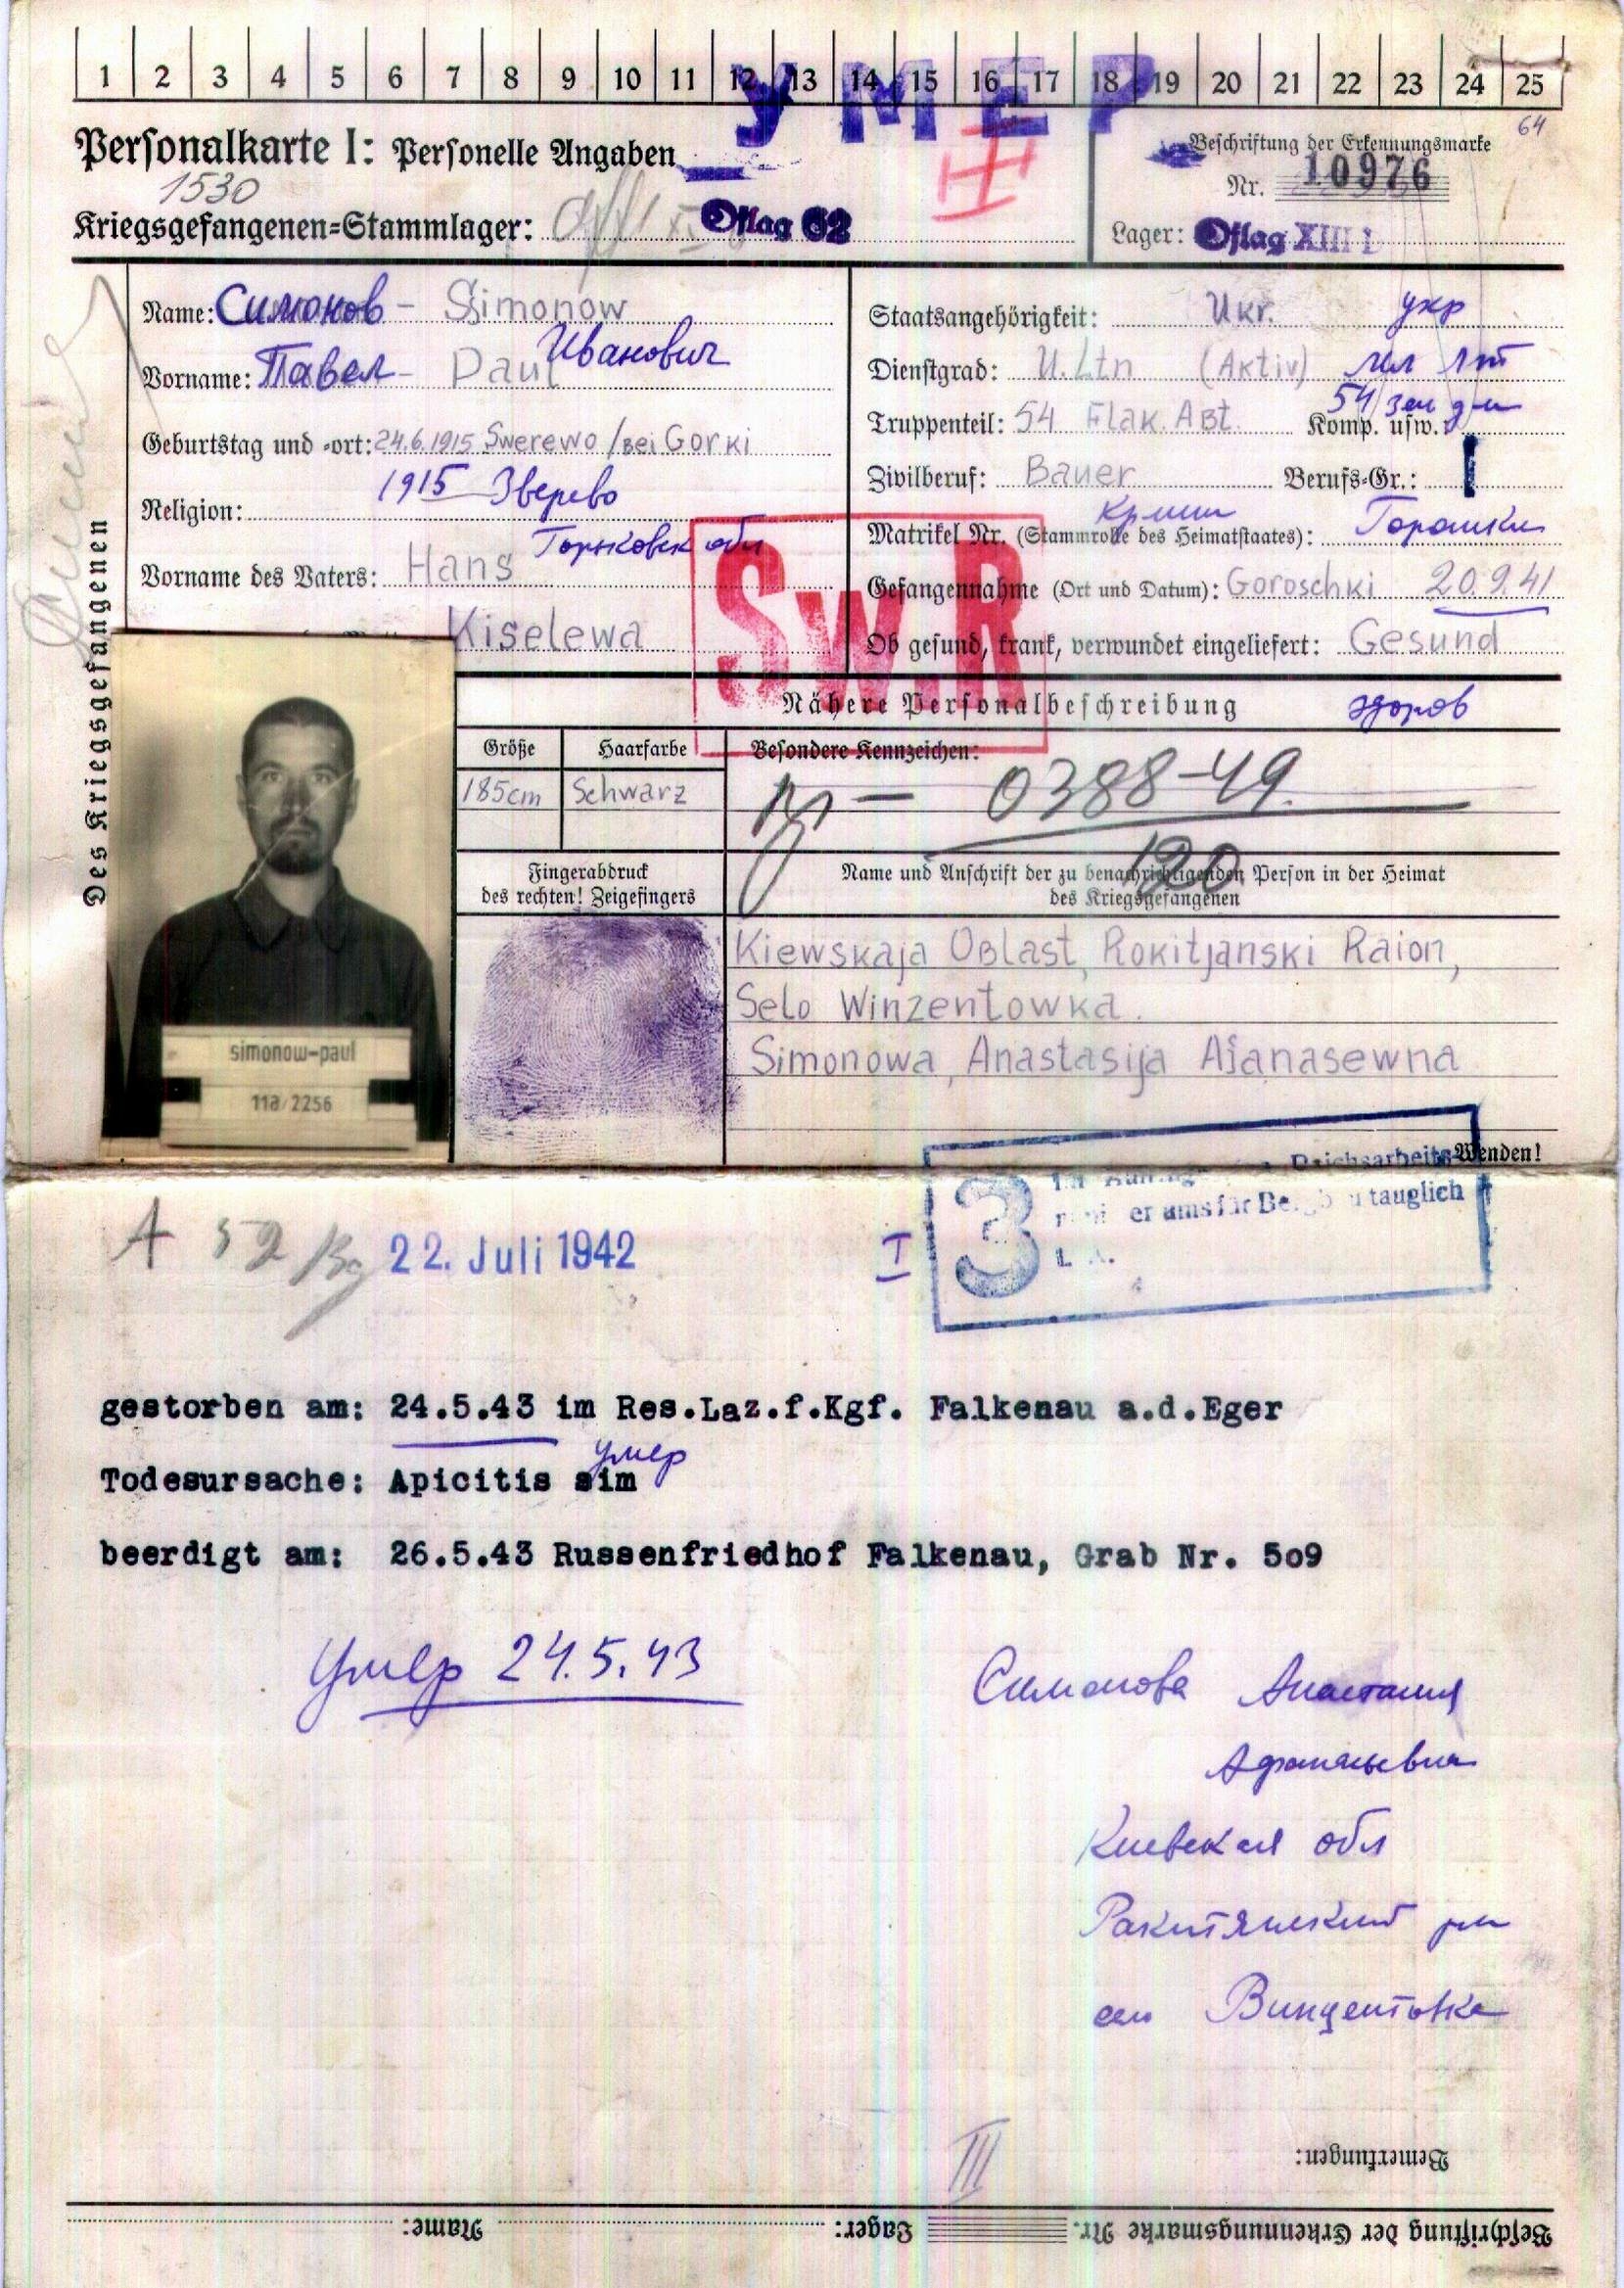 1 2 3 4 5 6 7 8 9 10 11 12 13 14 15 16 17 18 19 20 21 22 23 24 25
УМЕР
64
Personalkarte I: Personelle Angaben
Beschriftung der Erkennungsmarke
1530
Nr. 10976
Kriegsgefangenen=Stammlager: Oflag 62
Lager: Oflag XIII
Des Kriegsgefangenen
Name: Симонов - Simonow
Vorname: Павел - Paul Иванович
Geburtstag und =ort: 24.6.1915 Swerewo / bei Gorki
1915 Зверево
Religion:
Горьковск обл
Vorname des Vaters: Hans
Kiselewa
Staatsangehörigkeit: Ukr. укр
Dienstgrad: U.Ltn (Aktiv) мл лт
54 зен д-н
Truppenteil: 54 Flak. Abt. Komp. usw.:
Zivilberuf: Bauer Berufs=Gr.: I
Matrikel Nr. (Stammrolle des Heimatstaates): Горошки
Gefangennahme (Ort und Datum): Goroschki 20.9.41
Ob gesund, krank, verwundet eingeliefert: Gesund
SW.R
Nähere Personalbeschreibung здоров
Größe Haarfarbe Besondere Kennzeichen:
185cm Schwarz
0388-49.
120
Fingerabdruck
des rechten! Zeigefingers
Name und Anschrift der zu benachrichtigenden Person in der Heimat
des Kriegsgefangenen
Kiewskaja Oblast, Rokitjanski Raion,
Selo Winzentowka.
Simonowa, Anastasija Afanasewna
simonow-paul
11a/2256
Wenden!
3
Reichsarbeits
tauglich
A 59
22. Juli 1942
I
gestorben am: 24.5.43 im Res.Laz.f.Kgf. Falkenau a.d.Eger
умер
Todesursache: Apicitis sim
beerdigt am: 26.5.43 Russenfriedhof Falkenau, Grab Nr. 5o9
Умер 24.5.43
Симонова Анастасия
Афанасьевна
Киевская обл
Ракитянский рн
село Винцентовка
III
Bemerkungen:
Beschriftung der Erkennungsmarke Nr. Lager: Name: